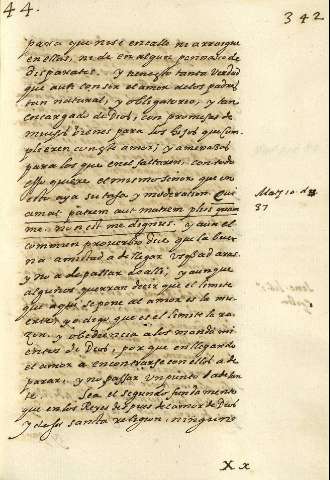 44.
342
para que ni se encalle ni arraigue
en ellas, ni de en algun pennasco de
disparates. y tenga tanta verdad
que aun con ser el amor de los padres
tan natural, y obligatorio, y tan
encargado de Dios, con promesas de
muchos bienes para los hijos que cum-
plieren con este amor, y amenazas
para los que en el faltaren, con todo
esso quiere el mismo señor que en
esto aya su tasa y moderation. Qui
amat patrem aut matrem plus quam
me, non est me dignus. y aun el
commun proverbio dice que la bue-
na amistad a de llegar usque ad aras.
y no a de passar de alli, y aunque
algunos querran decir que el limite
que aqui se pone al amor es la mu-
erte, yo digo que es el limite la ra-
zon. y obediencia a los mandami-
entos de Dios, por que en llegando
el amor a encontrarse con ellos a de
parar, y no passar un punto adelan-
te. Sea el segundo fundamento
que en los Reyes despues de el amor de Dios
y de su santa religion, ninguno
Mat. 10. d
37
X x